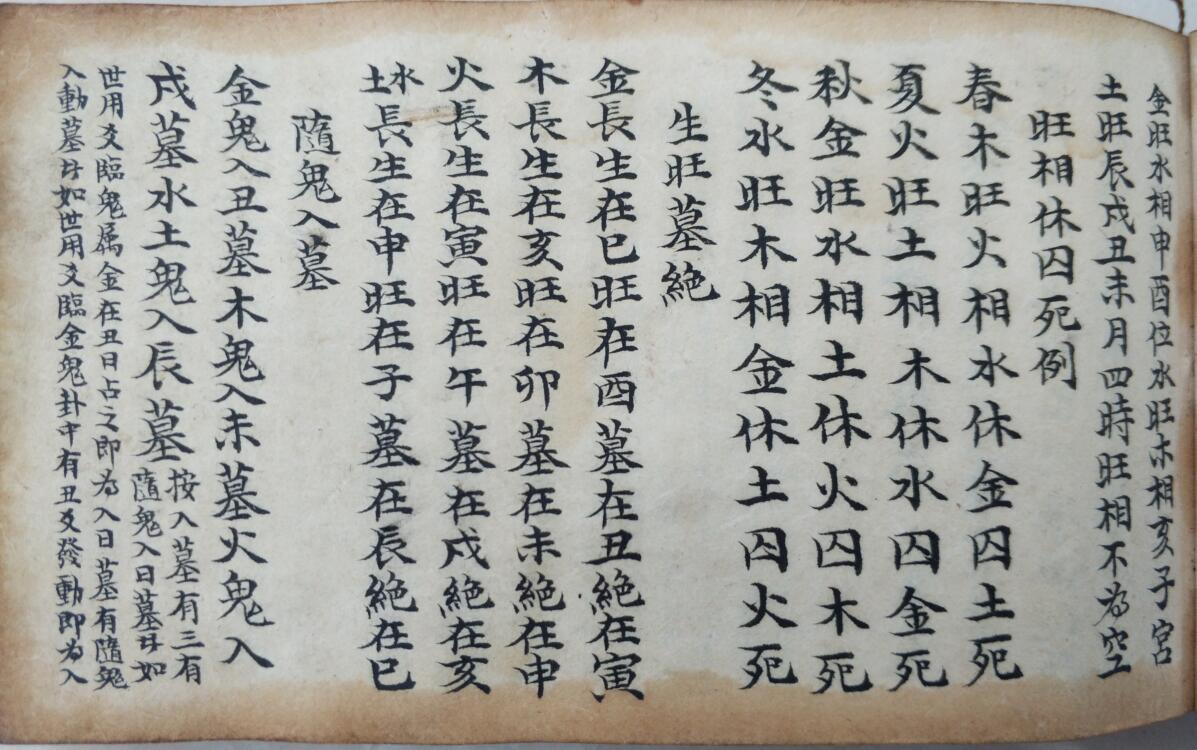 金旺水相申酉位水旺木相亥子宮
土旺辰戌丑未月四時旺相不為空
旺相休囚死例
春木旺火相水休金囚土死
夏火旺土相木休水囚金死
秋金旺水相土休火囚木死
冬水旺木相金休土囚火死
生旺墓絶
金長生在巳旺在酉墓在丑絶在寅
木長生在亥旺在卯墓在未絶在申
火長生在寅旺在午墓在戌絶在亥
水土長生在申旺在子墓在辰絶在巳
隨鬼入墓
金鬼入丑墓木鬼入未墓火鬼入
戌墓水土鬼入辰墓
按入墓有三有
隨鬼入日墓者如
世用爻臨鬼属金在丑日占之即為入日墓有隨鬼
入動墓者如世用爻臨金鬼卦中有丑爻發動即為入